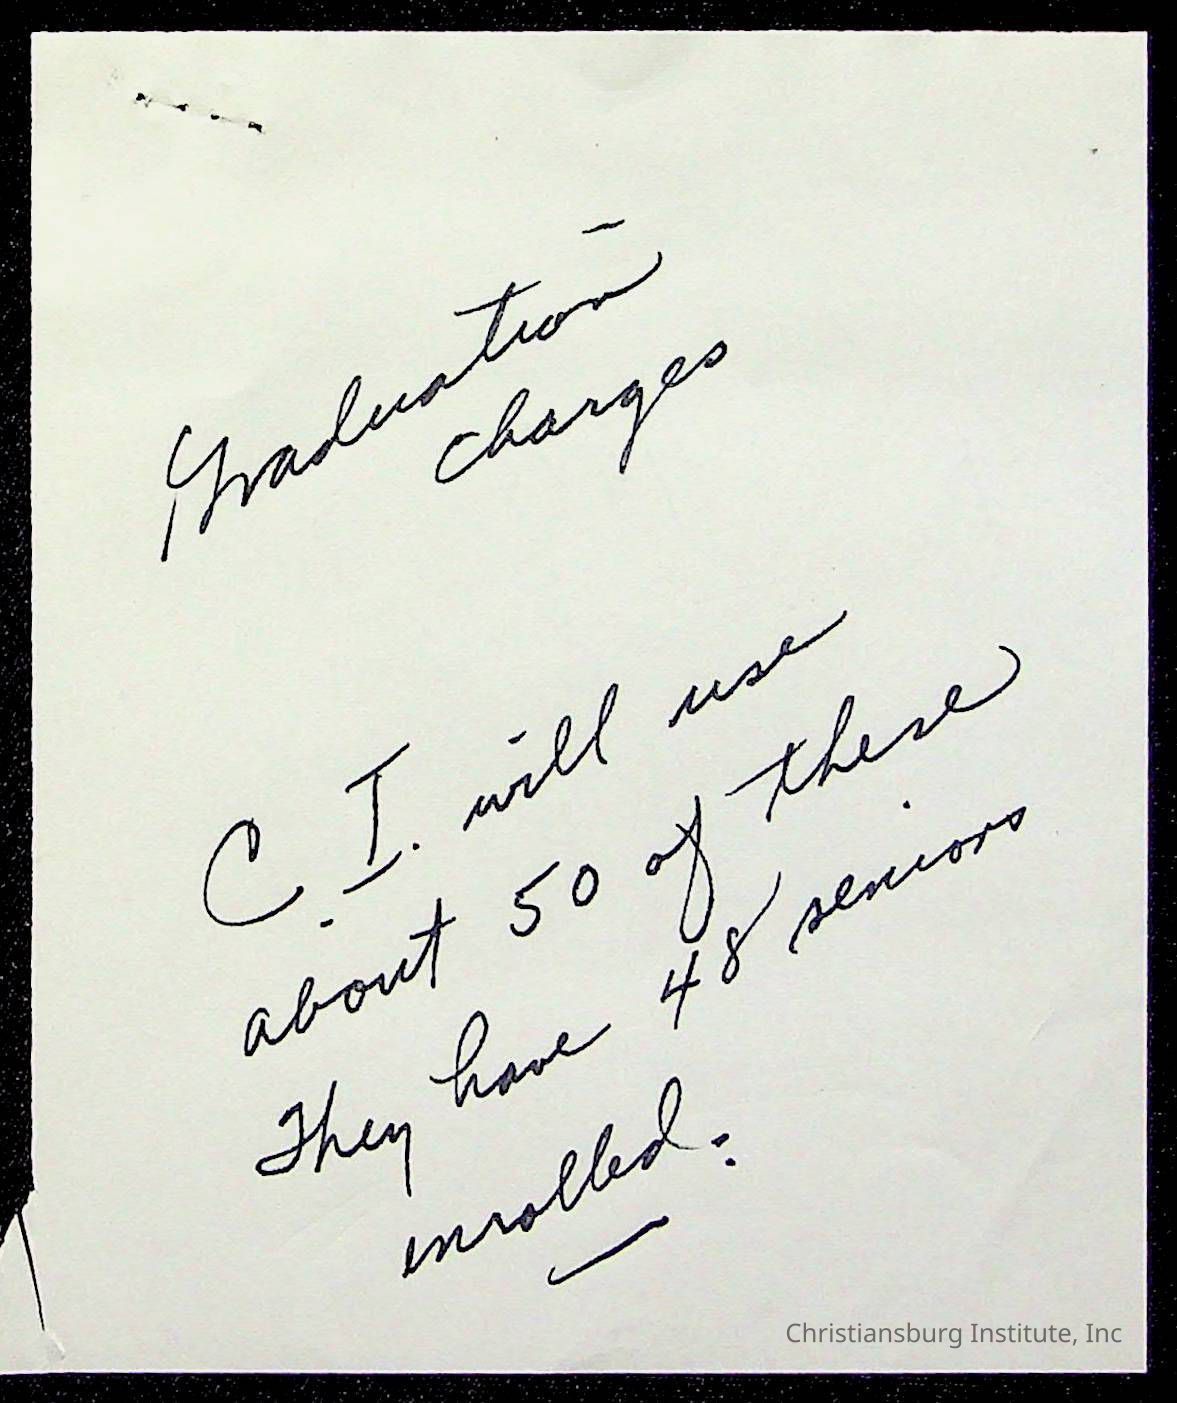 Graduation
charges
C. I. will use
about 50 of these
They have 48 seniors
enrolled.
Christiansburg Institute, Inc